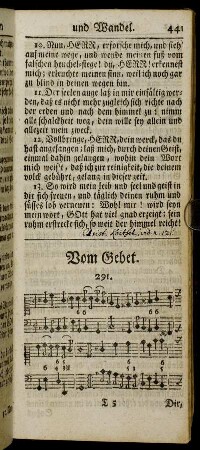 und Wandel. 441
10. Nun, HErr, erforsche mich, und sieh
auf meine wege, und wende meinen fuß vom
falschen heuchel-stege! du, HERR! erkennest
mich; erleuchte meinen sinn, weil ich noch gar
zu blind in deinen wegen bin.
11. Der jeden auge laß in mir einfältig wer-
den, daß es nicht mehr zugleich sich richte nach
der erden und nach dem himmel zu: nimm
alle schalckheit weg, dein wille sey allein und
allezeit mein zweck.
12. Vollbringe, HERR, dein werck, daß du
hast angefangen: laß mich, durch deinen Geist,
einmal dahin gelangen, wohin dein Wort
mich weist, daß ich zur reinigkeit, die deinem
volck gebührt, gelang in dieser zeit.
13. So wird mein leib und seel und geist in
dir sich freuen, und täglich deinen ruhm und
süsses lob verneuen: Wohl mir! wird seyn
mein wort, GOtt hat viel gnad erzeigt: sein
ruhm erstreckt sich, so weit der himmel reicht!
Vom Gebet.
291.
T 5 Dir,